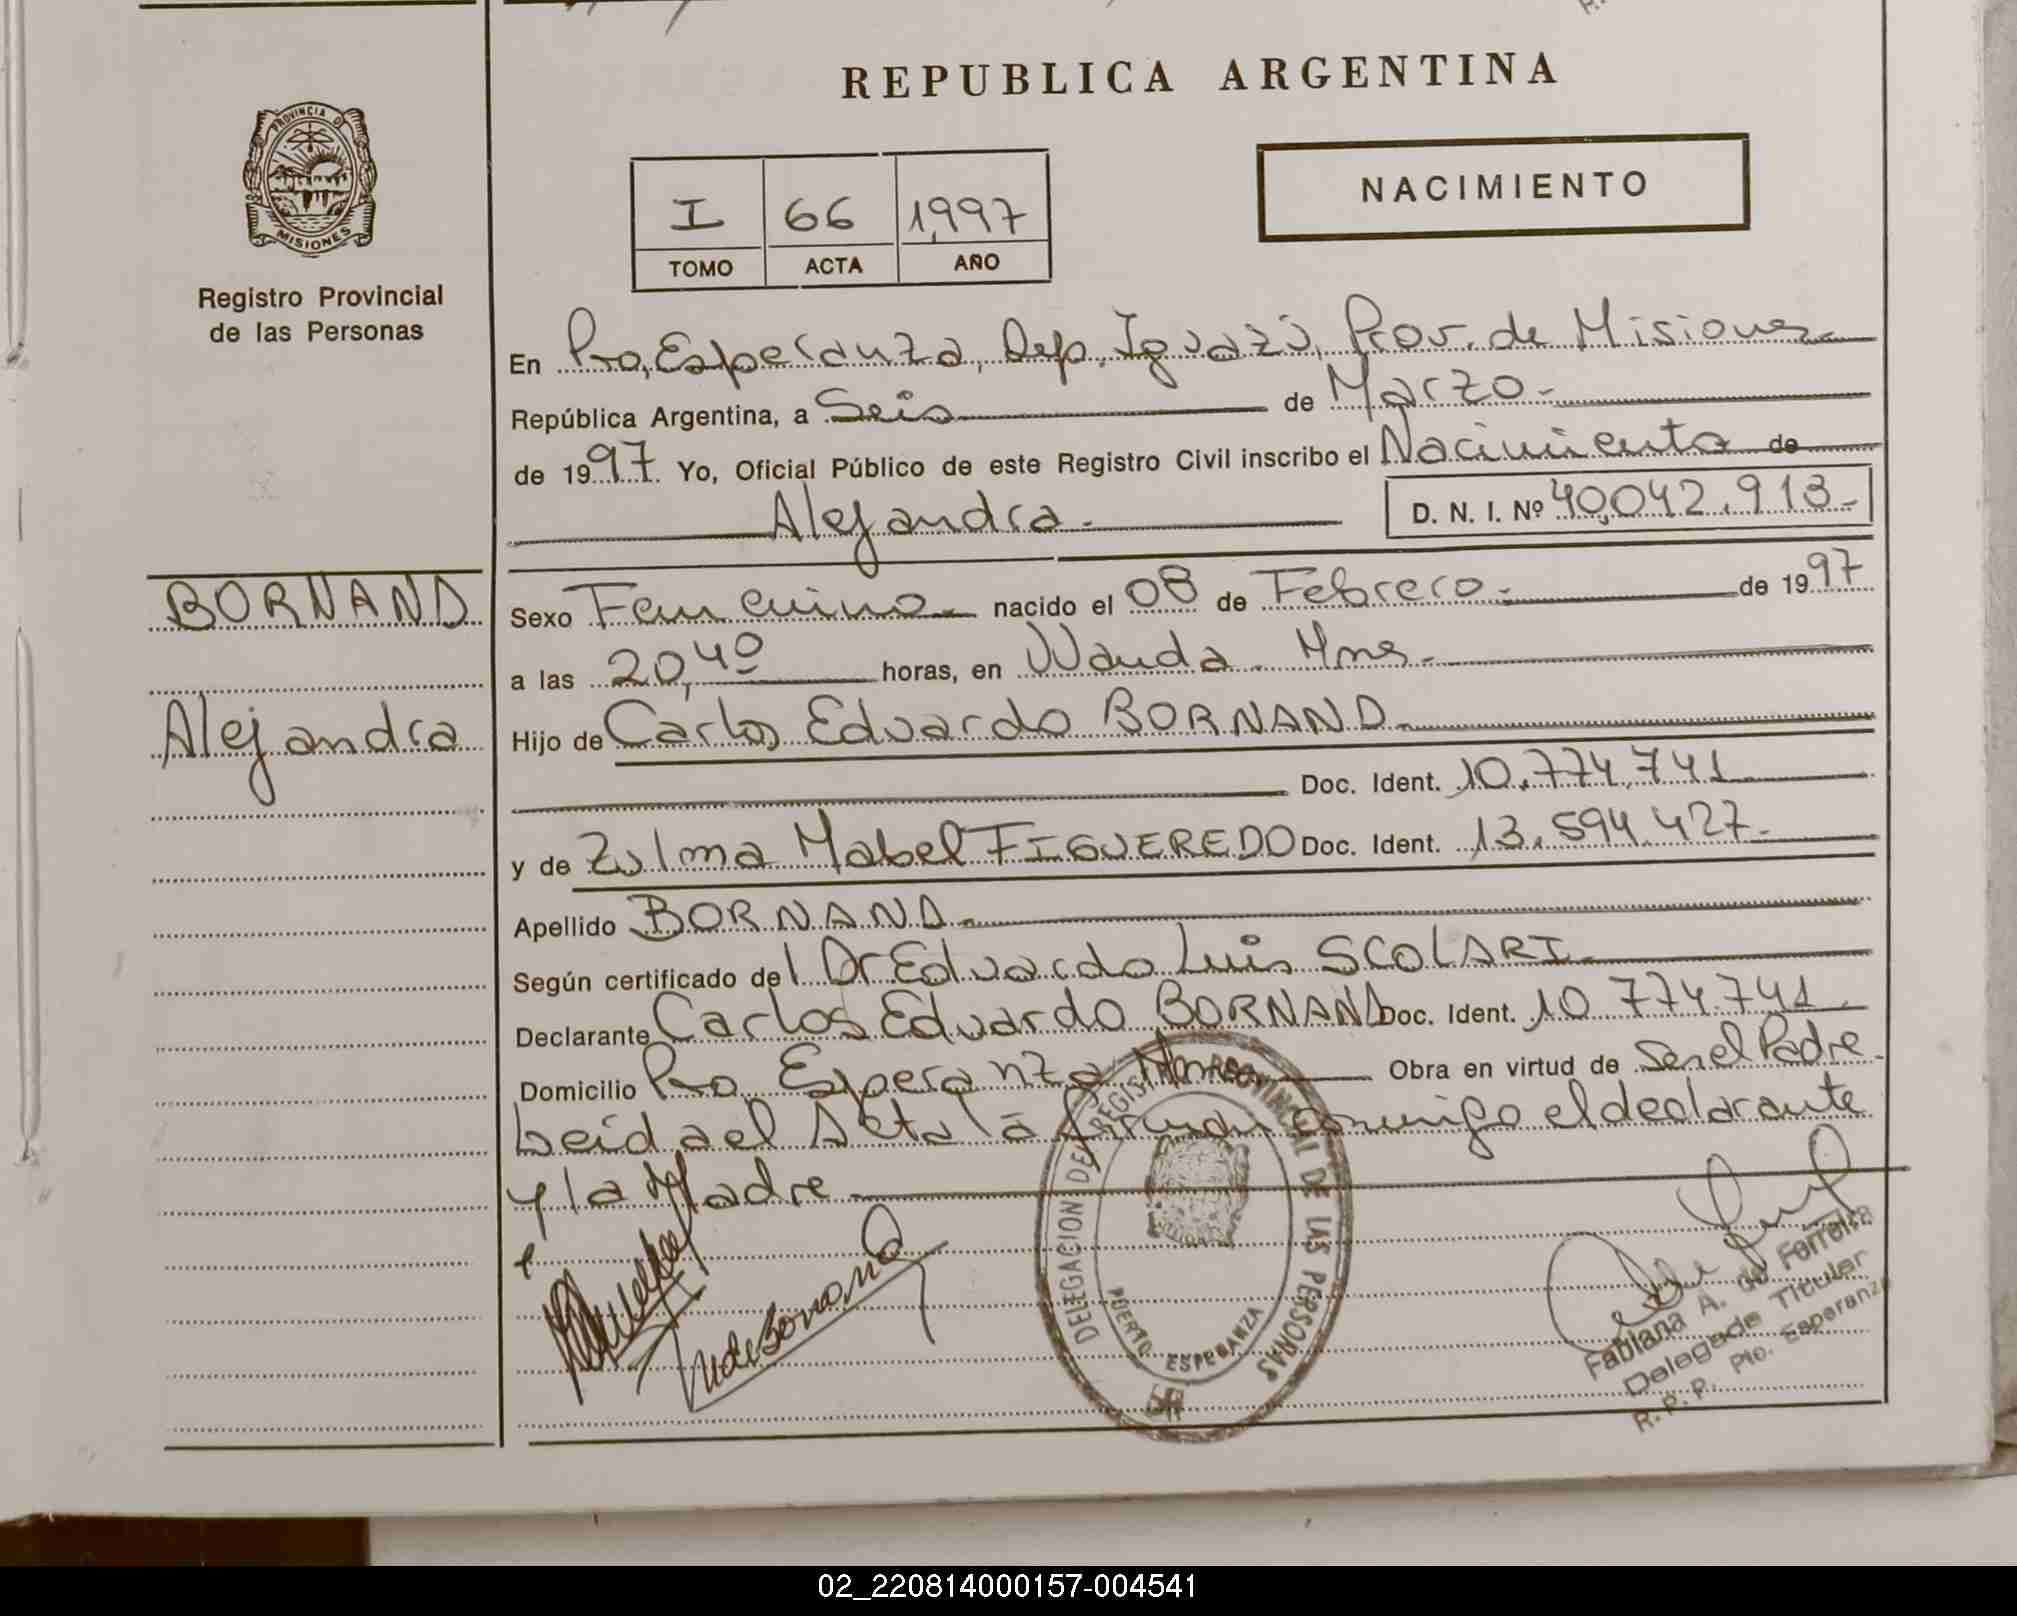 REPUBLICA ARGENTINA
PROVINCIA DE
MISIONES
Registro Provincial
de las Personas
I 66 1,997
TOMO ACTA AÑO
NACIMIENTO
En Pto, Esperanza, Dep. Iguazú, Prov. de Misiones
República Argentina, a Seis de Marzo.
de 1997. Yo, Oficial Público de este Registro Civil inscribo el Nacimiento de
Alejandra.
D. N. I. Nº 40,042.913-
BORNAND
Alejandra
Sexo Femenino nacido el 08 de Febrero. de 1997
a las 20,40 horas, en Wanda. Mnes.
Hijo de Carlos Eduardo BORNAND
Doc. Ident. 10.774.741
y de Zulma Mabel FIGUEREDO Doc. Ident. 13.594.427-
Apellido BORNAND
Según certificado del Dr Eduardo Luis SCOLARI
Declarante Carlos Eduardo BORNAND Doc. Ident. 10 774.741
Domicilio Pto Esperanza Mnes Obra en virtud de Ser el Padre
Leida el Acta la firman conmigo el declarante
y la Madre
DELEGACION DEL REGISTRO PROVINCIAL DE LAS PERSONAS
PUERTO ESPERANZA
Fabiana A. de Ferreira
Delegada Titular
R. P. P. Pto. Esperanza
02_220814000157-004541